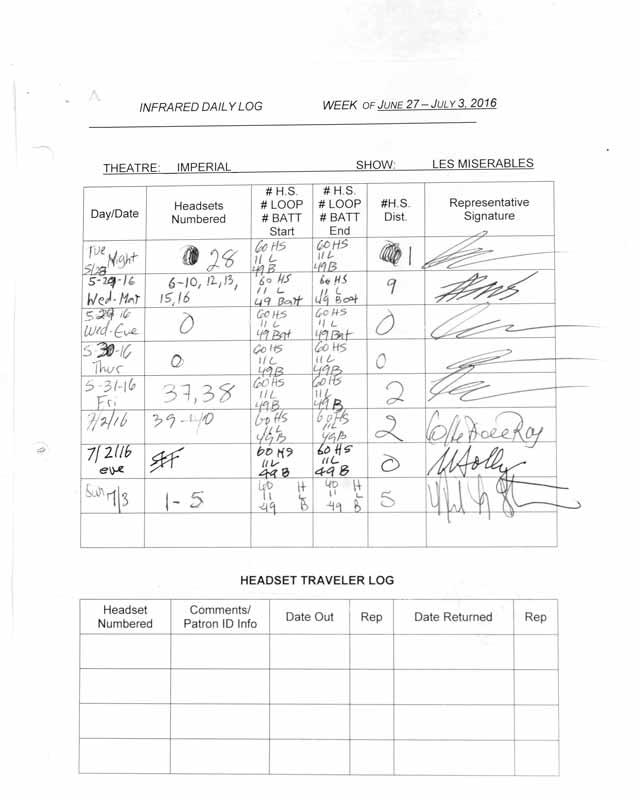 INFRARED DAILY LOG WEEK OF JUNE 27 – JULY 3, 2016
THEATRE: IMPERIAL SHOW: LES MISERABLES
Day/Date Headsets Numbered # H.S. # LOOP # BATT Start # H.S. # LOOP # BATT End #H.S. Dist. Representative Signature
Tue Night 5/28 28 60 HS 11 L 49 B 60 HS 11 L 49 B 1
5-29-16 Wed-Mat 6-10, 12, 13, 15, 16 60 HS 11 L 49 Batt 60 HS 11 L 49 Batt 9
5 29 16 Wed-Eve 0 60 HS 11 L 49 Bat 60 HS 11 L 49 Bat 0
5-30-16 Thur 0 60 HS 11 L 49 B 60 HS 11 L 49 B 0
5-31-16 Fri 37, 38 60 HS 11 L 49 B 60 HS 11 L 49 B 2
7/2/16 39-40 60 HS 11 L 49 B 60 HS 11 L 49 B 2
7/2/16 eve 60 HS 11 L 49 B 60 HS 11 L 49 B 0
Sun 7/3 1-5 40 H 11 L 49 B 40 H 11 L 49 B 5
HEADSET TRAVELER LOG
Headset Numbered Comments/ Patron ID Info Date Out Rep Date Returned Rep